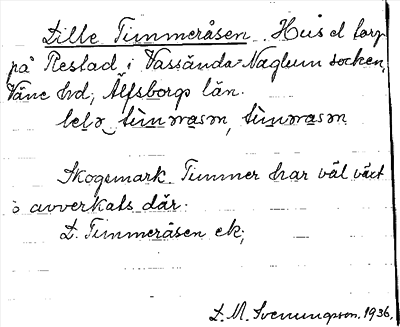 Lille Timmeråsen. Hus el torp
på Restad i Vassända-Naglum socken,
Väne hd; Älfsborgs län.
Skogsmark. Timmer har väl växt
o avverkats där.
L. Timmeråsen ek;
D. M. Svenungsson. 1936.